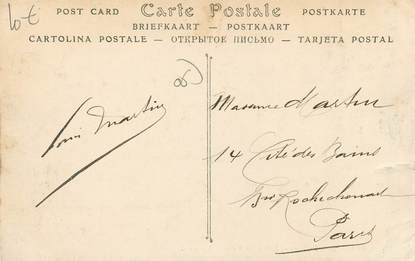 10 €
POST CARD Carte Postale POSTKARTE
BRIEFKAART - POSTKAART
CARTOLINA POSTALE - ОТКРЫТОЕ ПИСЬМО - TARJETA POSTAL
Louis Martin
Madame Martin
14 Cité des Bains
Bd Rochechouart
Paris